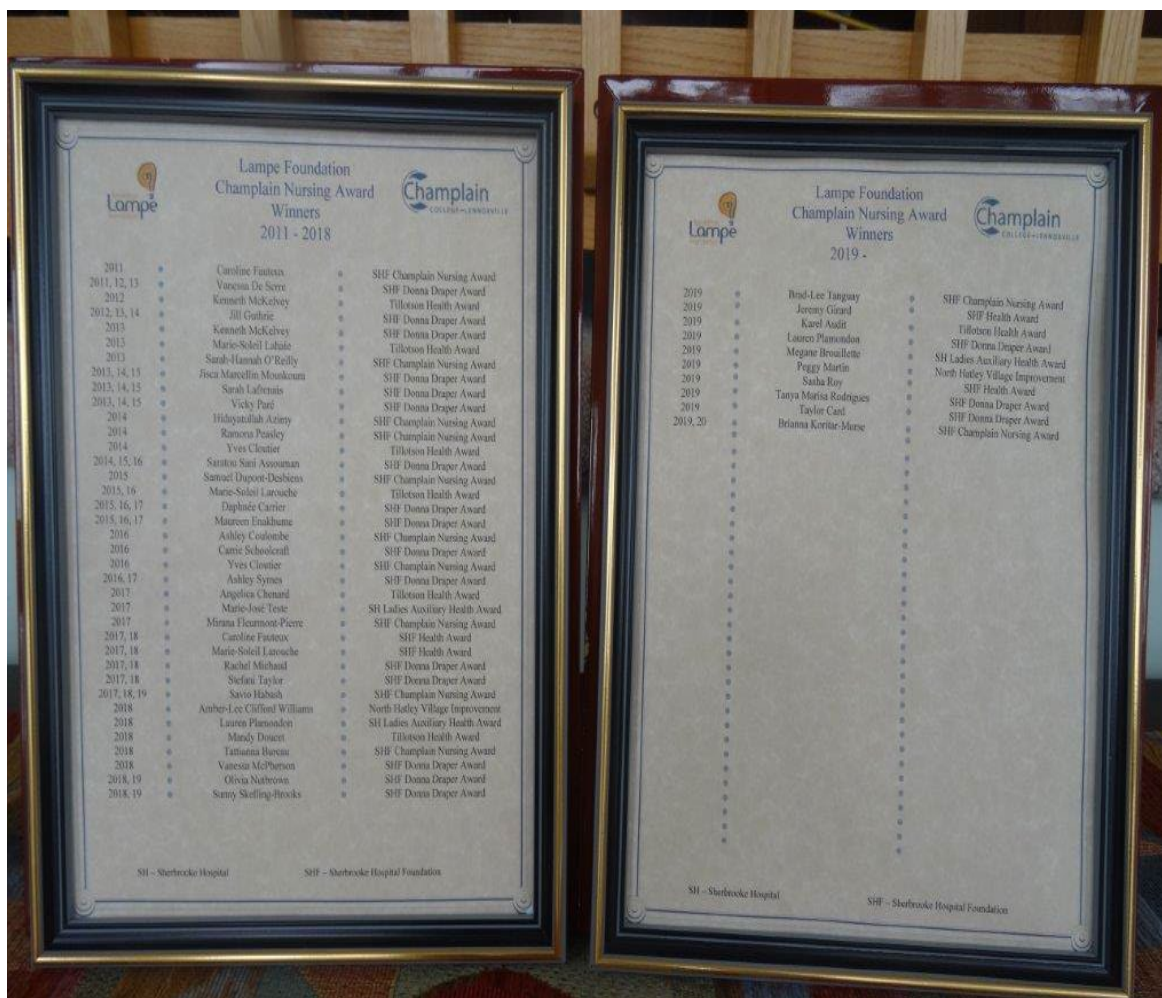 Lampe
Lampe Foundation
Champlain Nursing Award
Winners
2011 - 2018
Champlain
COLLEGE-LENNOXVILLE
2011 • Caroline Fauteux • SHF Champlain Nursing Award
2011, 12, 13 • Vanessa De Serre • SHF Donna Draper Award
2012 • Kenneth McKelvey • Tillotson Health Award
2012, 13, 14 • Jill Guthrie • SHF Donna Draper Award
2013 • Kenneth McKelvey • SHF Donna Draper Award
2013 • Marie-Soleil Labaie • Tillotson Health Award
2013 • Sarah-Hannah O'Reilly • SHF Champlain Nursing Award
2013, 14, 15 • Jisca Marcellin Mounkoura • SHF Donna Draper Award
2013, 14, 15 • Sarah Lafrenais • SHF Donna Draper Award
2013, 14, 15 • Vicky Paré • SHF Donna Draper Award
2014 • Hidayatullah Azimy • SHF Champlain Nursing Award
2014 • Ramona Peasley • SHF Champlain Nursing Award
2014 • Yves Cloutier • Tillotson Health Award
2014, 15, 16 • Saratou Sani Assouman • SHF Donna Draper Award
2015 • Samuel Dupont-Desbiens • SHF Champlain Nursing Award
2015, 16 • Marie-Soleil Larouche • Tillotson Health Award
2015, 16, 17 • Daphnée Carrier • SHF Donna Draper Award
2015, 16, 17 • Maureen Enakhume • SHF Donna Draper Award
2016 • Ashley Coulombe • SHF Champlain Nursing Award
2016 • Carrie Schoolcraft • SHF Donna Draper Award
2016 • Yves Cloutier • SHF Champlain Nursing Award
2016, 17 • Ashley Symes • SHF Donna Draper Award
2017 • Angelica Chenard • Tillotson Health Award
2017 • Marie-José Teste • SH Ladies Auxiliary Health Award
2017 • Mirana Fleurmont-Pierre • SHF Champlain Nursing Award
2017, 18 • Caroline Fauteux • SHF Health Award
2017, 18 • Marie-Soleil Larouche • SHF Health Award
2017, 18 • Rachel Michaud • SHF Donna Draper Award
2017, 18 • Stefani Taylor • SHF Donna Draper Award
2017, 18, 19 • Savio Habash • SHF Champlain Nursing Award
2018 • Amber-Lee Clifford Williams • North Hatley Village Improvement
2018 • Lauren Plamondon • SH Ladies Auxiliary Health Award
2018 • Mandy Doucet • Tillotson Health Award
2018 • Tatianna Bureau • SHF Champlain Nursing Award
2018 • Vanessa McPherson • SHF Donna Draper Award
2018, 19 • Olivia Nutbrown • SHF Donna Draper Award
2018, 19 • Sunny Skelling-Brooks • SHF Donna Draper Award
SH – Sherbrooke Hospital SHF – Sherbrooke Hospital Foundation
Lampe
Lampe Foundation
Champlain Nursing Award
Winners
2019 -
Champlain
COLLEGE-LENNOXVILLE
2019 • Brad-Lee Tanguay • SHF Champlain Nursing Award
2019 • Jeremy Girard • SHF Health Award
2019 • Karel Audit • Tillotson Health Award
2019 • Lauren Plamondon • SHF Donna Draper Award
2019 • Megane Brouillette • SH Ladies Auxiliary Health Award
2019 • Peggy Martin • North Hatley Village Improvement
2019 • Sasha Roy • SHF Health Award
2019 • Tanya Marisa Rodrigues • SHF Donna Draper Award
2019 • Taylor Card • SHF Donna Draper Award
2019, 20 • Brianna Koritar-Morse • SHF Champlain Nursing Award
SH – Sherbrooke Hospital SHF – Sherbrooke Hospital Foundation